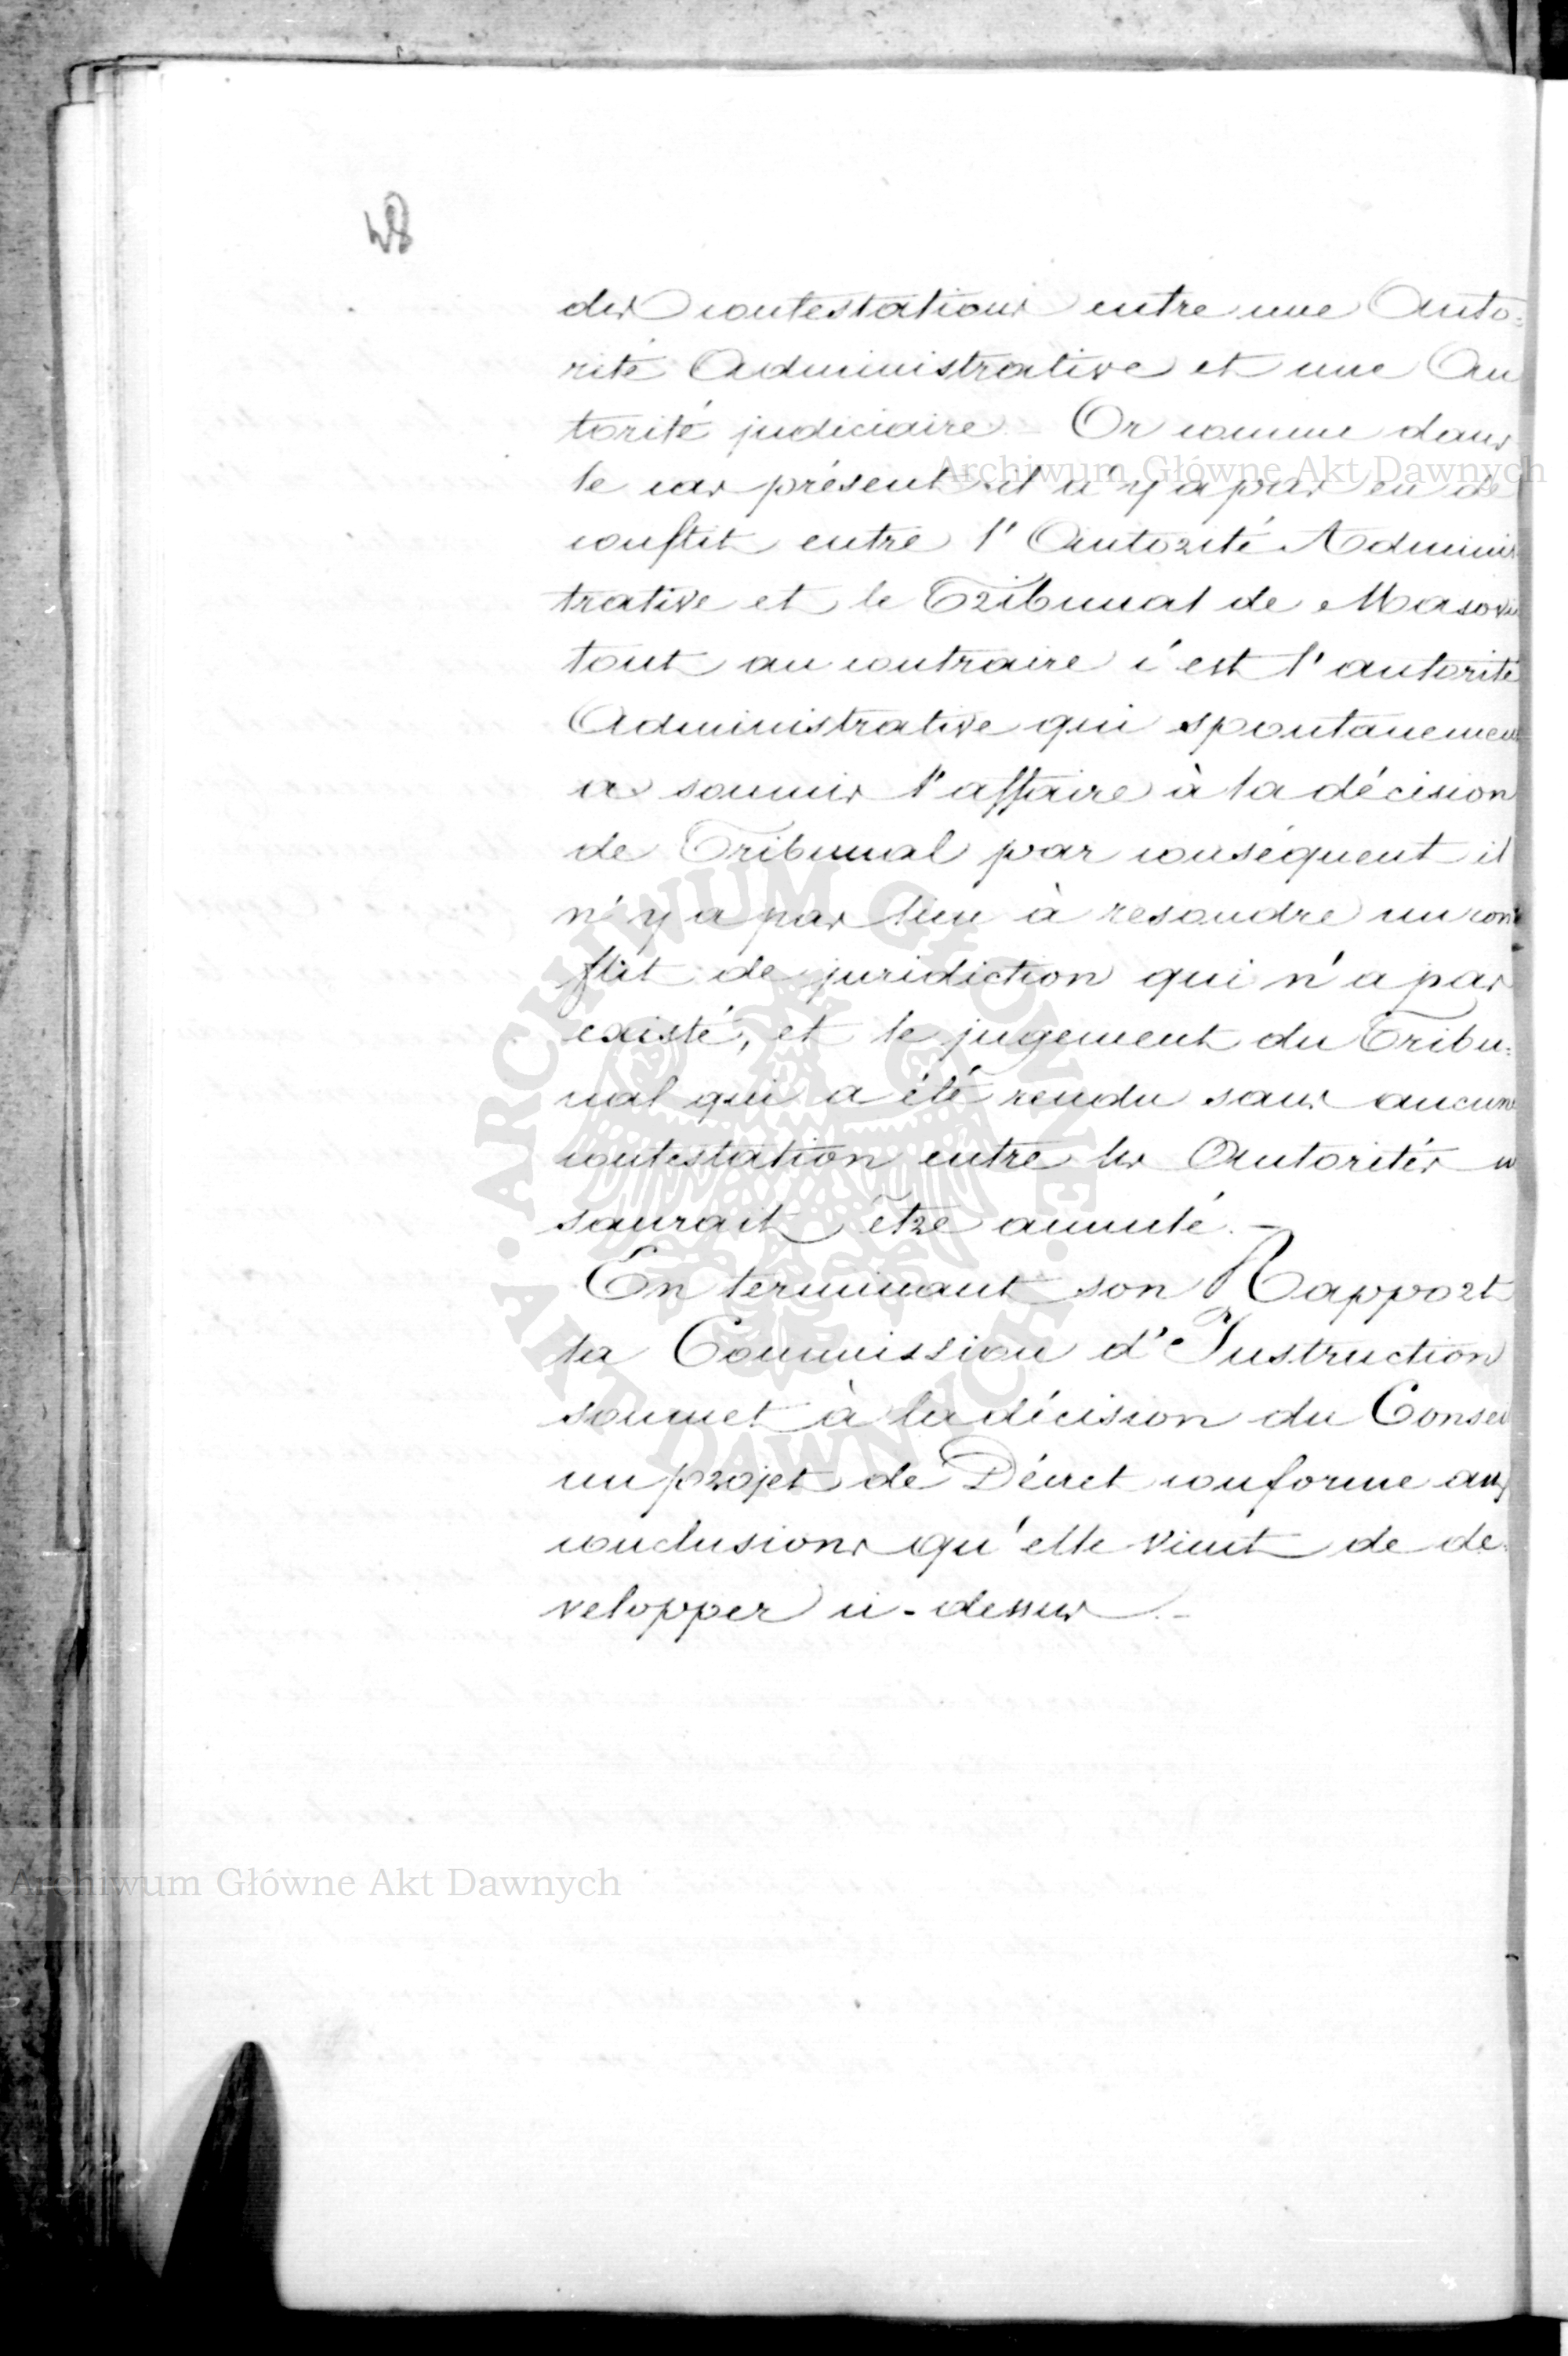 48
des contestations entre une Auto=
rité Administrative et une Au
torité judiciaire. – Or comme dans
le cas présent il n'y a pas eu de
conflit entre l'Autorité Adminis
trative et le Tribunal de Masovie
tout au contraire c'est l'autorité
Administrative qui spontanement
a soumis l'affaire à la décision
de Tribunal par conséquent il
n'y a pas lieu à resoudre un con=
flit de juridiction qui n'a pas
existé, et le jugement du Tribu=
nal qui a été rendu sans aucune
contestation entre les Autorités ne
saurait être annulé. –
En terminant son Rapport
la Commission d'Instruction
soumet à la décision du Conseil
un projet de Décret conforme aux
conclusions qu'elle vient de de
velopper ci-dessus. –
Archiwum Główne Akt Dawnych
Archiwum Główne Akt Dawnych
ARCHIWUM GŁÓWNE · AKT DAWNYCH ·